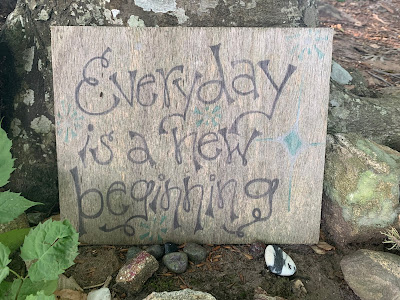 Everyday
is a new
beginning